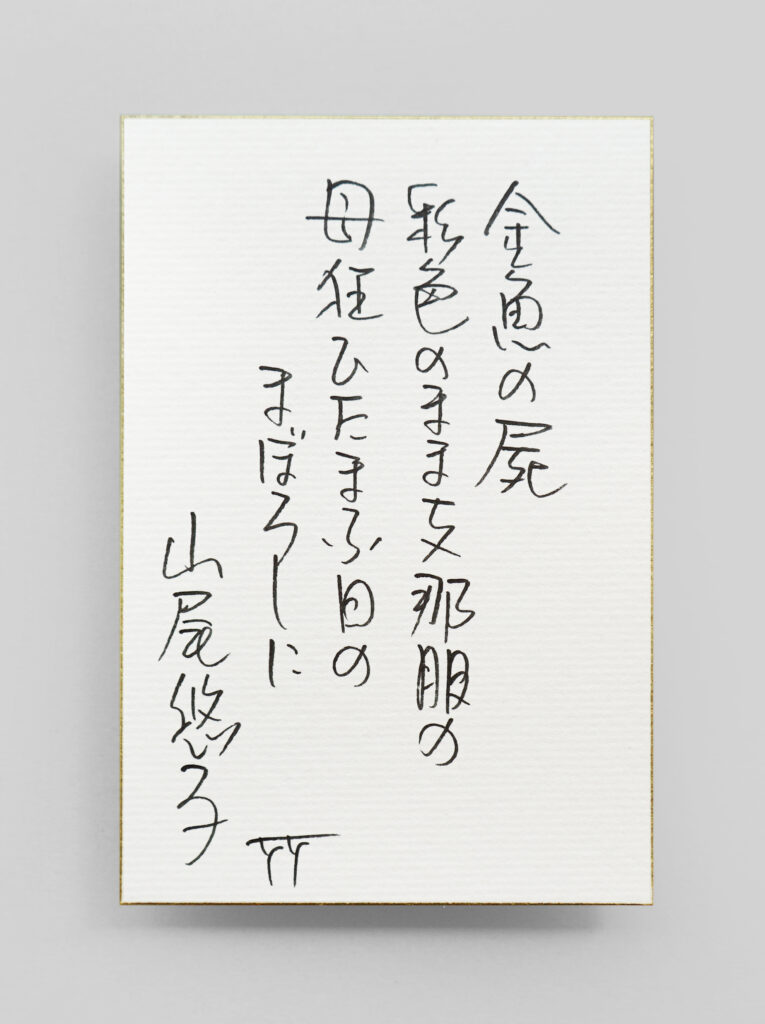 金魚の屍
彩色のまま支那服の
母狂ひたまふ日の
まぼろしに
山尾悠子